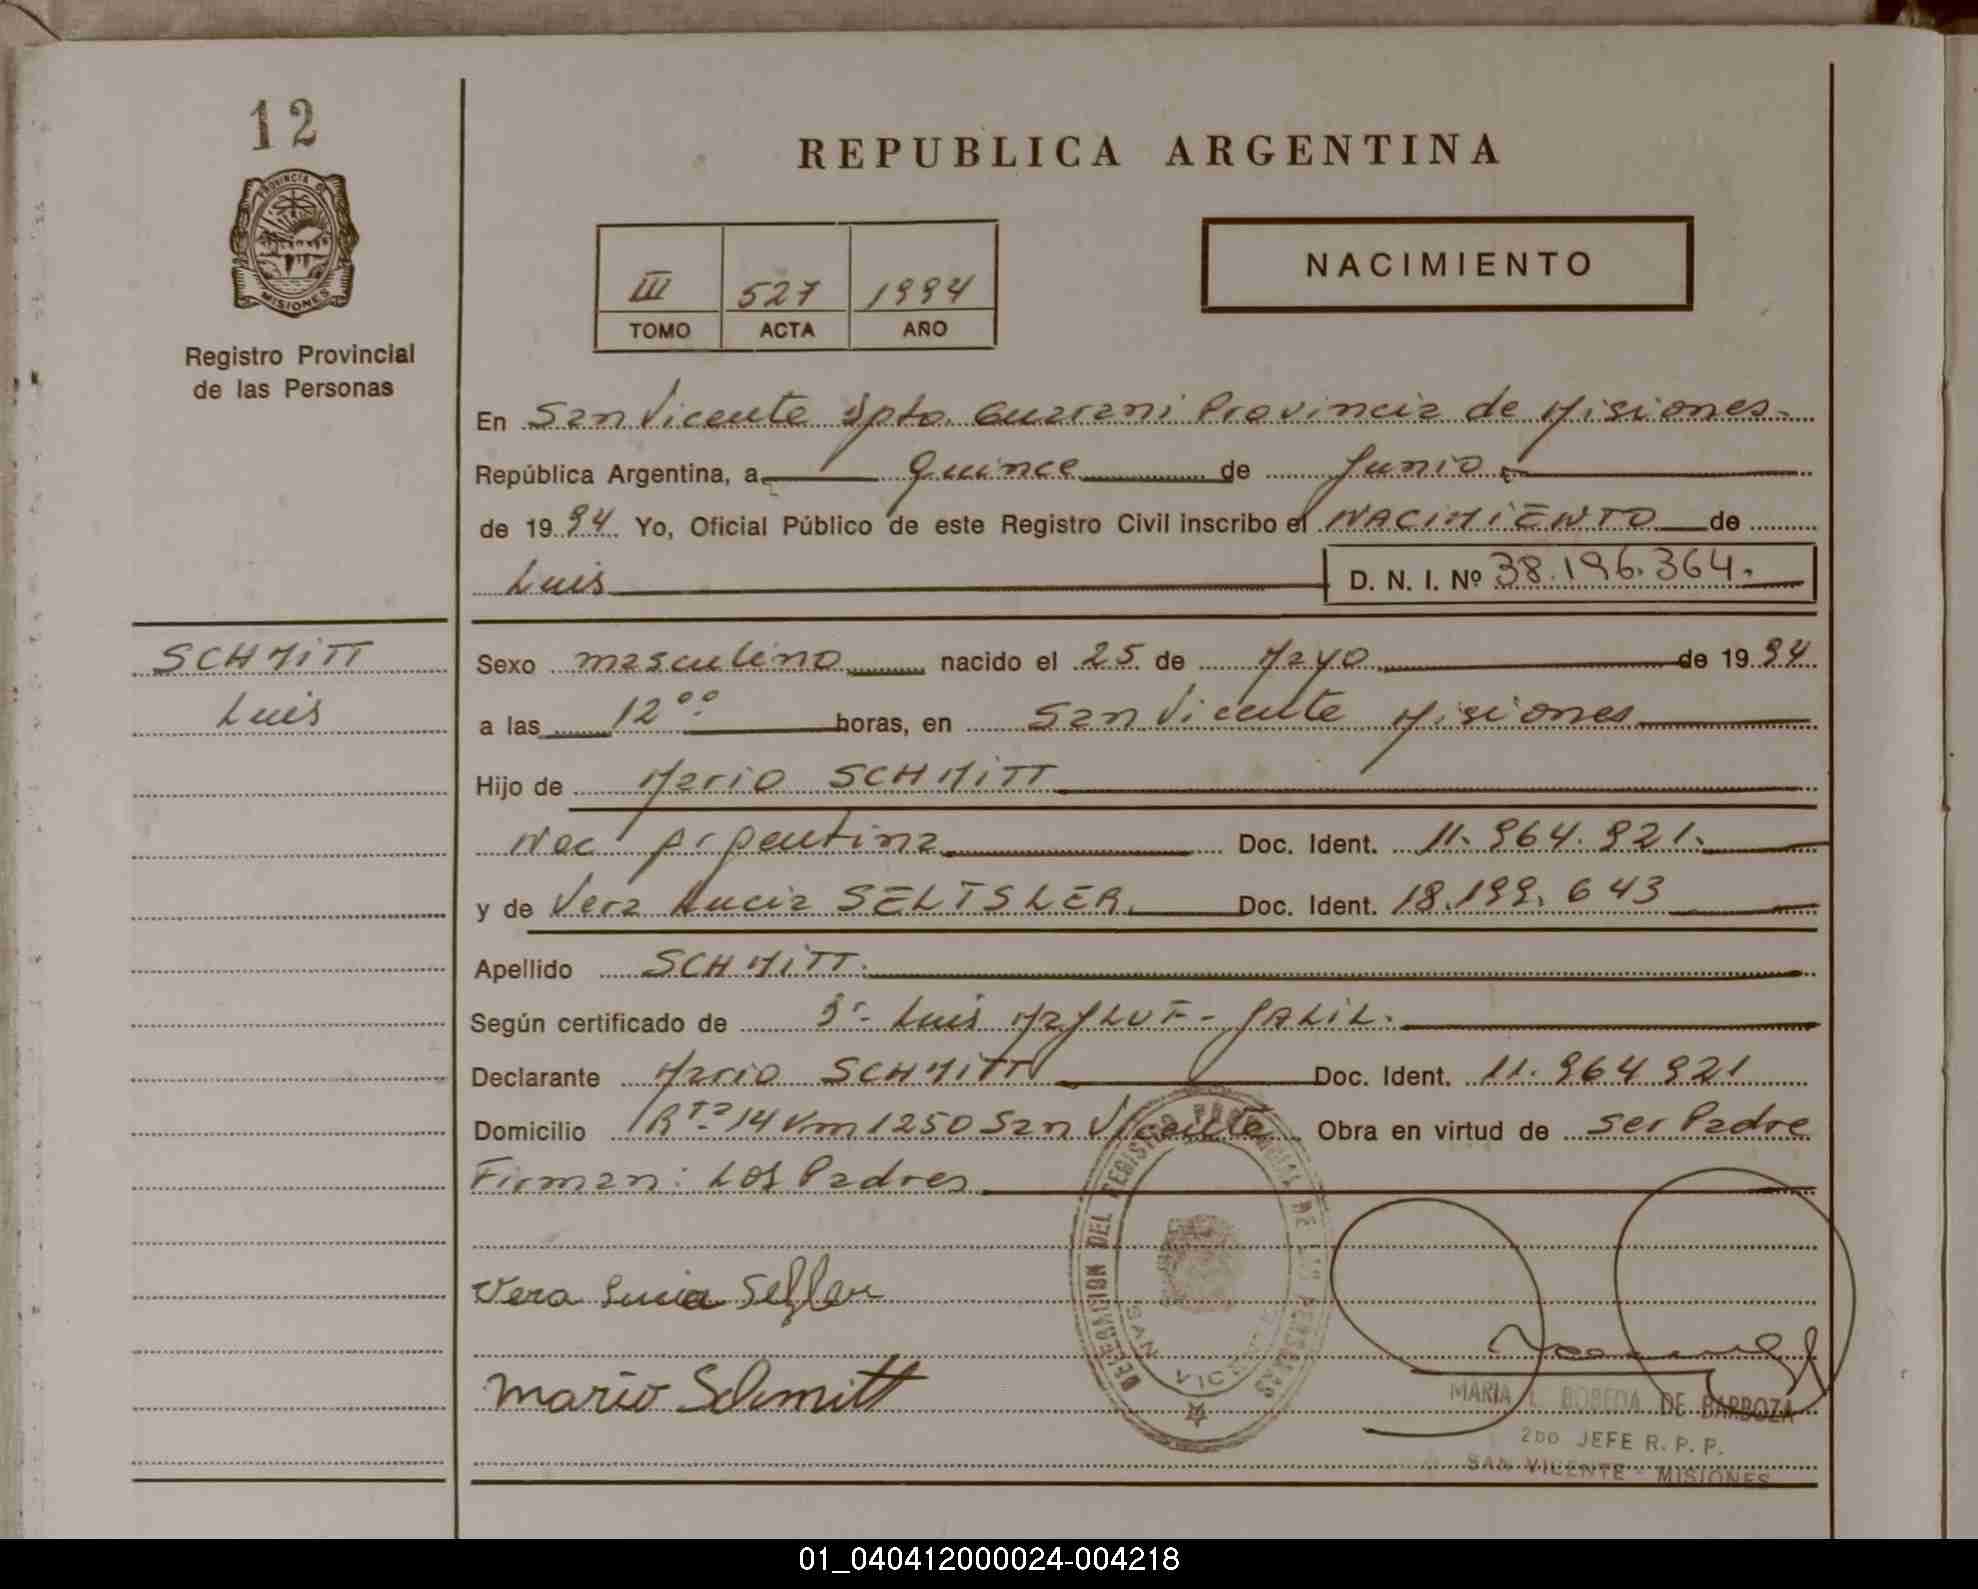 12
PROVINCIA DE
MISIONES
Registro Provincial
de las Personas
REPUBLICA ARGENTINA
III 527 1994
TOMO ACTA AÑO
NACIMIENTO
En San Vicente Dpto. Guarani Provincia de Misiones.
República Argentina, a Quince de Junio
de 1994. Yo, Oficial Público de este Registro Civil inscribo el NACIMIENTO de
Luis D. N. I. Nº 38.196.364.
SCHMITT
Luis
Sexo masculino nacido el 25 de Mayo de 1994
a las 12°° horas, en San Vicente Misiones
Hijo de Mario SCHMITT
Nac Argentina Doc. Ident. 11.964.921.
y de Vera Lucia Doc. Ident. 18.199.643
Apellido SCHMITT.
Según certificado de Luis GALIL.
Declarante Mario SCHMITT Doc. Ident. 11.964 921
Domicilio Rta 14 Km 1250 San Vicente Obra en virtud de ser Padre
Firman: Los Padres
Vera Lucia
Mario Schmitt
DELEGACION DEL REGISTRO PROVINCIAL DE LAS PERSONAS
SAN VICENTE
MARIA L. BOBEDA DE BARBOZA
2DO JEFE R. P. P.
SAN VICENTE - MISIONES
01_040412000024-004218